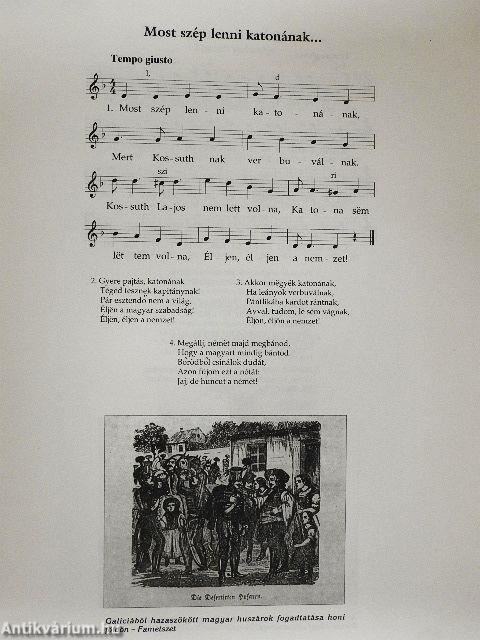 Most szép lenni katonának...
Tempo giusto
l, d
1. Most szép len - ni ka - to - ná - nak,
Mert Kos - suth nak ver bu - vál - nak.
szi ri
Kos - suth La - jos nem lett vol - na, Ka to - na sëm
lët tem vol - na, Él jen, él jen a nem - zet!
2. Gyere pajtás, katonának
Teged tesznek kapitánynak!
Pár esztendő nem a világ,
Éljen a magyar szabadság!
Éljen, éljen a nemzet!
3. Akkor mëgyëk katonának,
Ha leányok verbuválnak,
Pántlikába kardot rántnak,
Avval, tudom, le sem vágnak,
Éljen, éljën a nemzet!
4. Megállj, német majd megbánod,
Hogy a magyart mindig bántod.
Bőrödből csinálok dudát,
Azon fújom ezt a nótát:
Jaj, de huncut a német!
Die Desertirten Husaren.
Galíciából hazaszökött magyar huszárok fogadtatása honi
földön - Fametszet
Antikvárium.hu